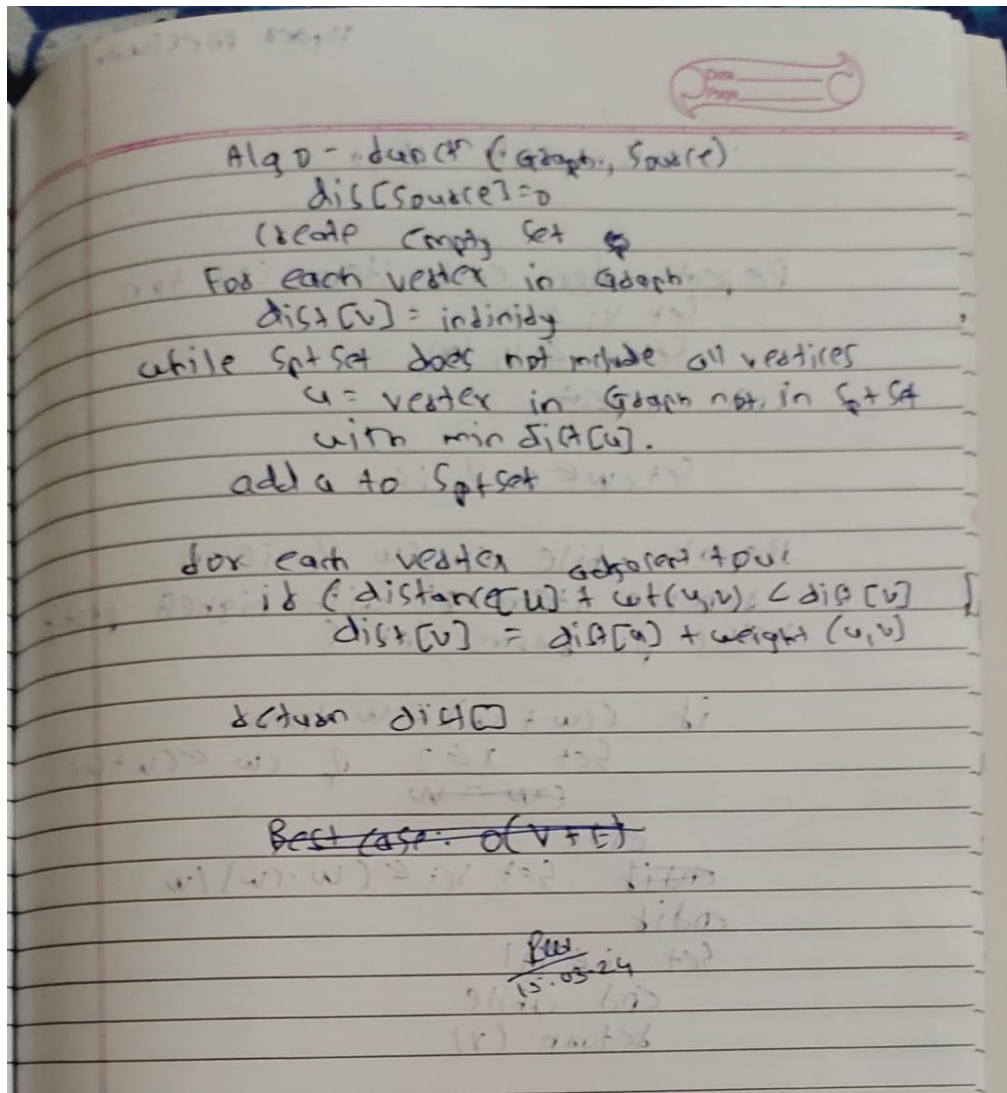 Date
Page
Algo - funct (Graph, Source)
dis[Source]=0
Create empty set
For each vertex in Graph
dist[v] = infinity
while Sptset does not include all vertices
u = vertex in Graph not in Sptset
with min dist[u].
add u to Sptset
for each vertex adjacent to u:
if (distance[u] + wt(u,v) < dist[v]
dist[v] = dist[u] + weight (u,v)
return dist[]
Best case: O(V+E)
15.03.24